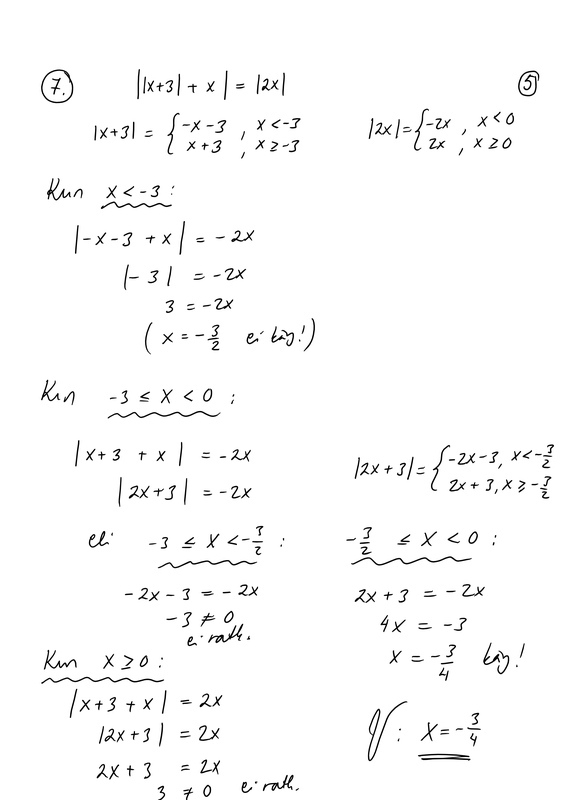 7. ||x+3| + x| = |2x| 5
|x+3| = { -x-3 , x < -3
x+3 , x ≥ -3
|2x| = { -2x , x < 0
2x , x ≥ 0
Kun x < -3 :
|-x-3 + x| = -2x
|-3| = -2x
3 = -2x
( x = -3/2 ei käy! )
Kun -3 ≤ x < 0 ;
|x+3 + x| = -2x
|2x+3| = -2x
|2x+3| = { -2x-3, x < -3/2
2x+3, x ≥ -3/2
eli -3 ≤ x < -3/2 :
-2x-3 = -2x
-3 ≠ 0
ei ratk.
-3/2 ≤ x < 0 :
2x+3 = -2x
4x = -3
x = -3/4 käy!
Kun x ≥ 0 :
|x+3 + x| = 2x
|2x+3| = 2x
2x+3 = 2x
3 ≠ 0 ei ratk.
V: x = -3/4